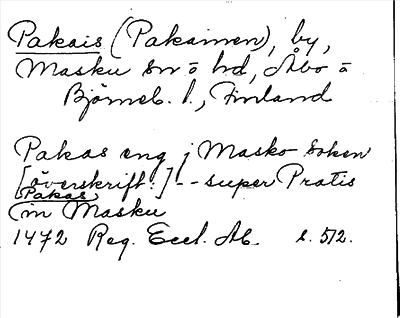 Pakais (Pakainen), by,
Masku sn o hd, Åbo o
Björneb. l., Finland
Pakas eng j Masko soken
[överskrift:] -- super Pratis
Pakas
in Masku
1472 Reg. Eccl. Ab. s. 512.